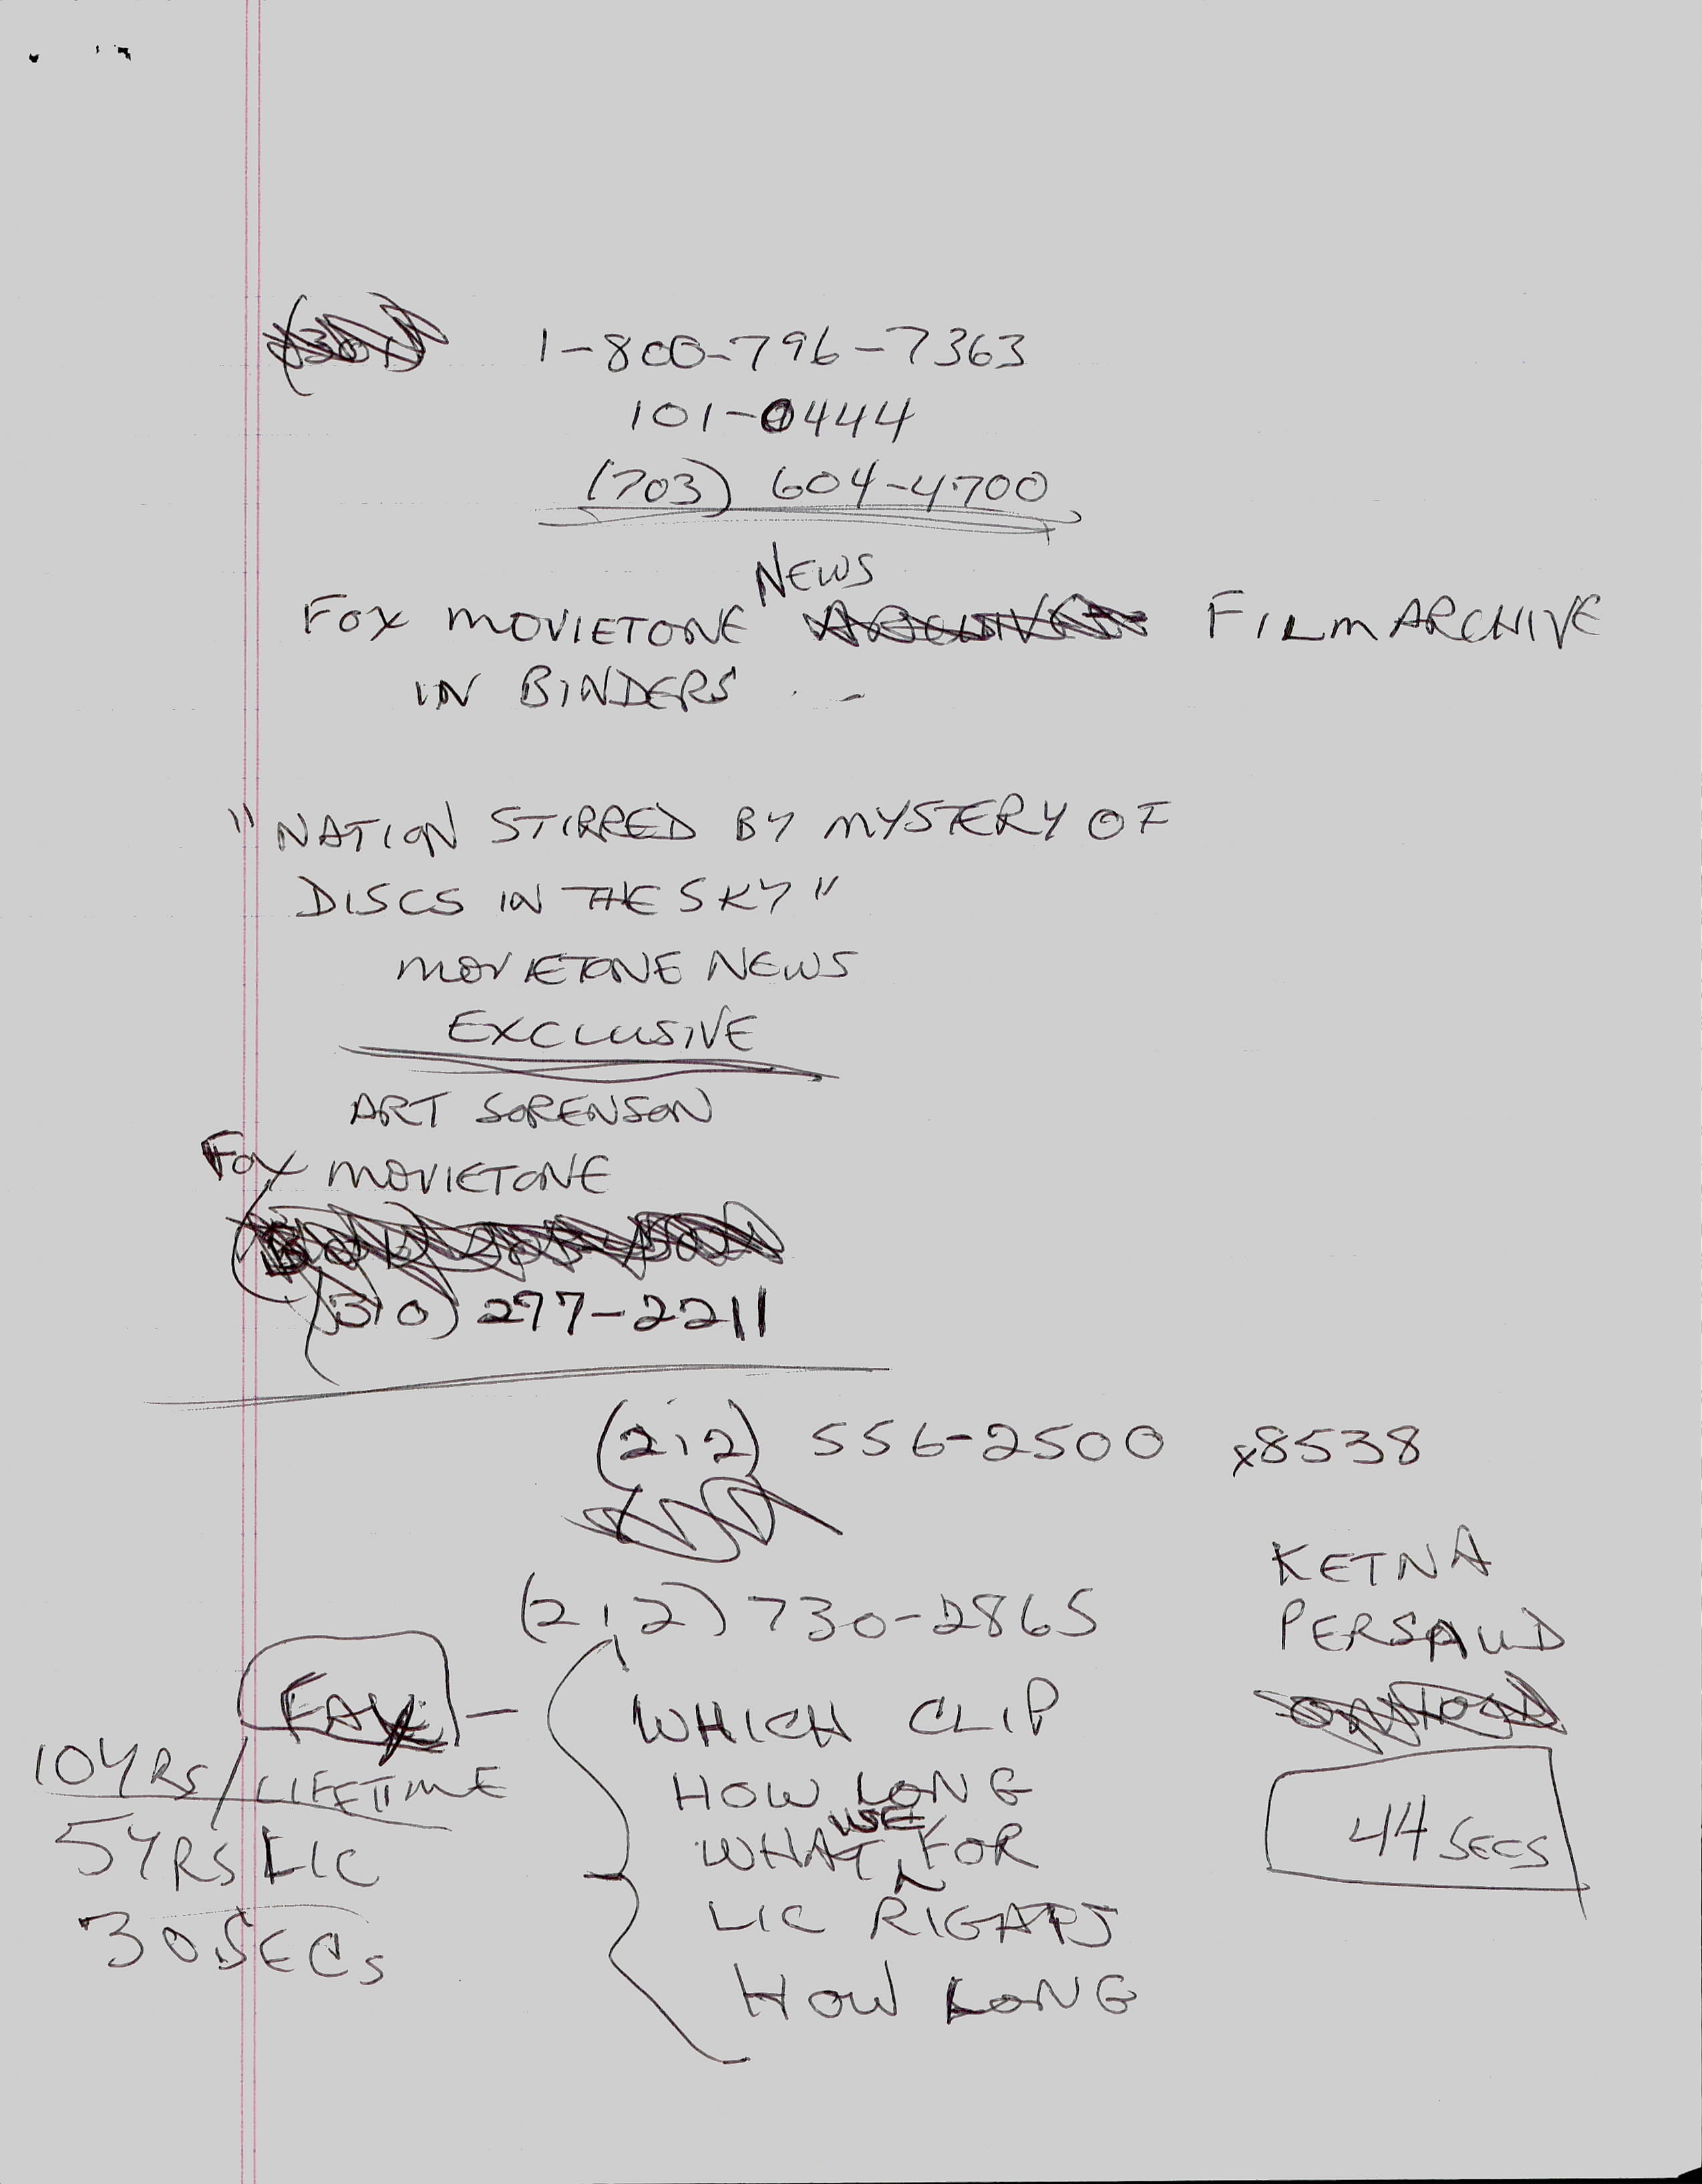 1-800-796-7363
101-0444
(703) 604-4700
NEWS
FOX MOVIETONE FILM ARCHIVE
IN BINDERS . -
"NATION STIRRED BY MYSTERY OF
DISCS IN THE SKY"
MOVIETONE NEWS
EXCLUSIVE
ART SORENSON
FOX MOVIETONE
(310) 277-2211
(212) 556-2500 x8538
(212) 730-2865
KETNA
PERSAUD
FAX -
WHICH CLIP
HOW LONG
WHAT USE FOR
LIC RIGHTS
HOW LONG
10YRS/LIFETIME
5YRS LIC
30SECS
44 SECS